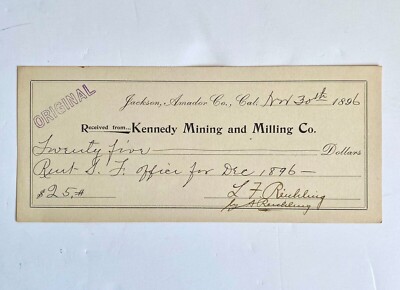 ORIGINAL
Jackson, Amador Co., Cal. Nov 30th 1896
Received from Kennedy Mining and Milling Co.
Twenty five Dollars
Rent S. F. office for Dec 1896
$25.#
L F Reichling
by A Reichling